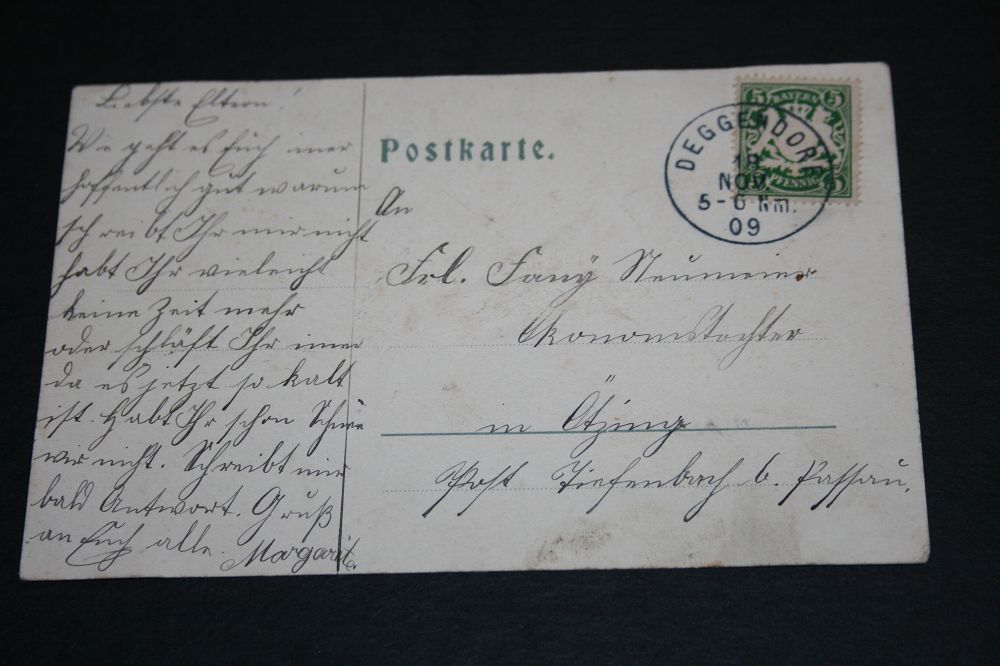 Liebste Eltern!
Wie geht es Euch imer
hoffentlich gut warum
schreibt Ihr mir nicht
habt Ihr vieleicht
keine Zeit mehr
oder schläft Ihr imer
da es jetzt so kalt
ist. Habt Ihr schon Schnee
wir nicht. Schreibt mir
bald Antwort. Gruß
an Euch alle.
Postkarte.
An
Frl. Fany Neumeier
Ökonomstochter
in Ötzing
Post Tiefenbach b. Passau.
BAYERN
5 5
PFENNIG
5
DEGGENDORF
NOV.
5-6 Nm.
09